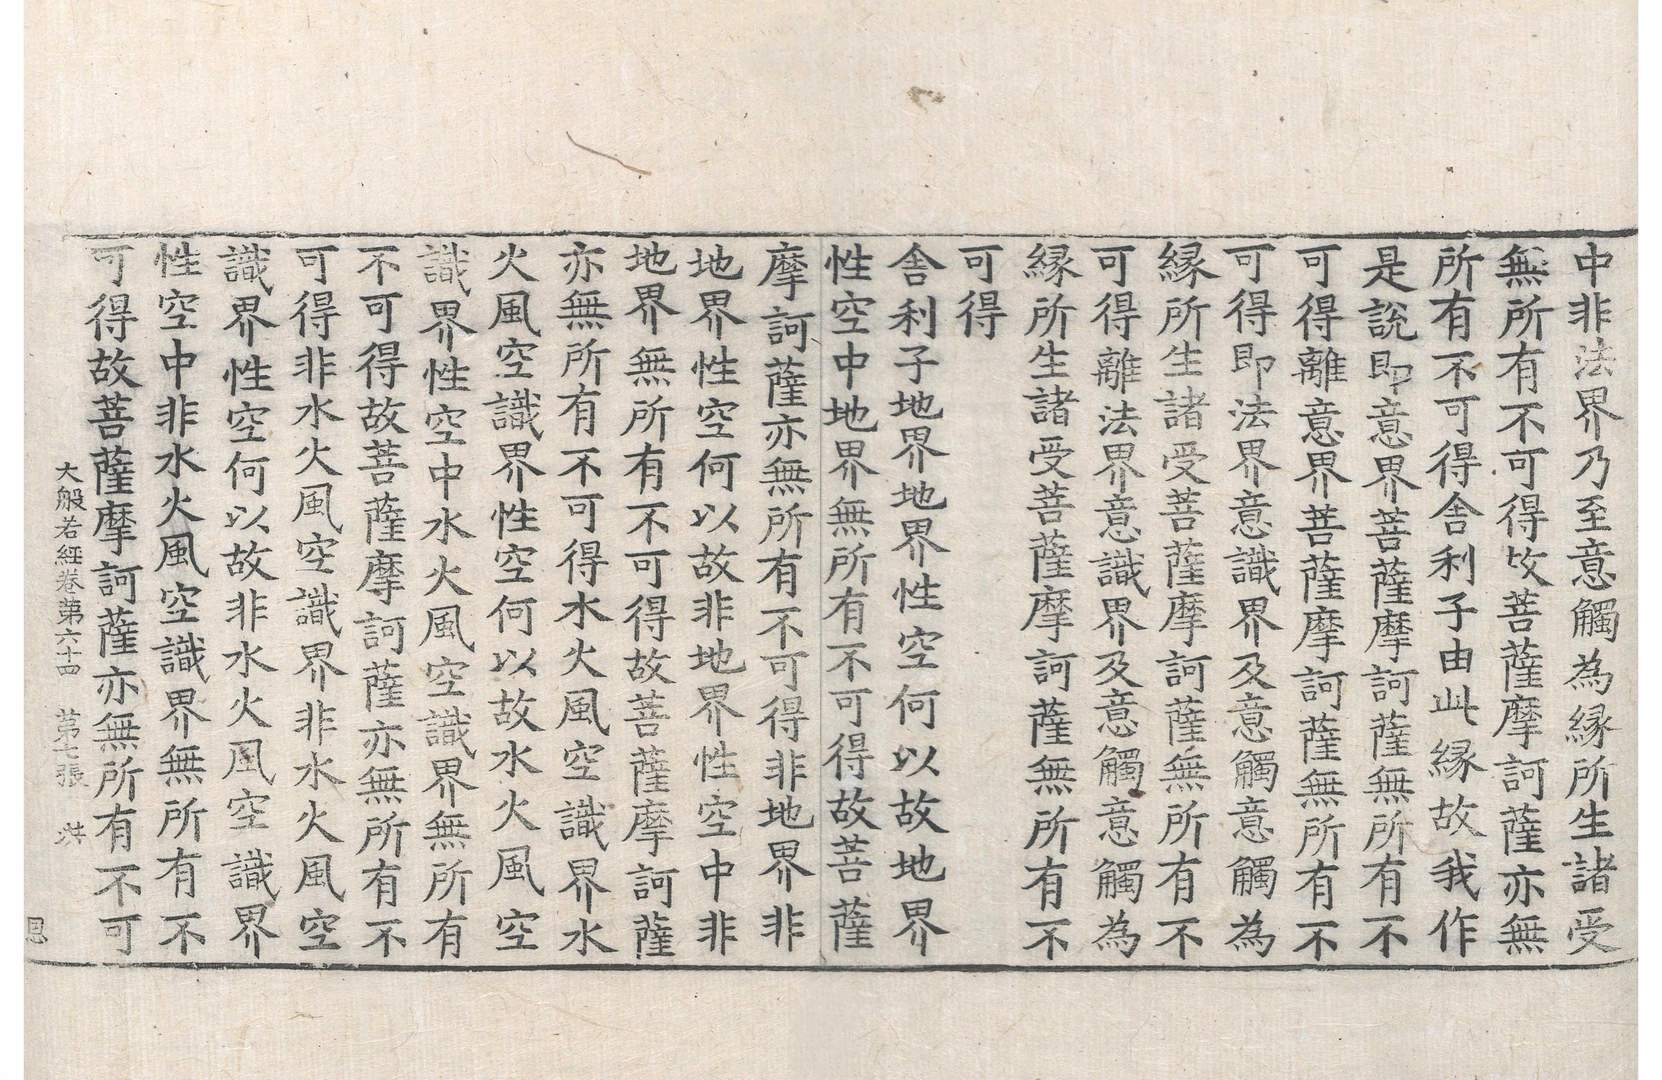 中非法界乃至意觸為縁所生諸受
無所有不可得故菩薩摩訶薩亦無
所有不可得舎利子由此縁故我作
是說即意界菩薩摩訶薩無所有不
可得離意界菩薩摩訶薩無所有不
可得即法界意識界及意觸意觸為
縁所生諸受菩薩摩訶薩無所有不
可得離法界意識界及意觸意觸為
縁所生諸受菩薩摩訶薩無所有不
可得
舎利子地界地界性空何以故地界
性空中地界無所有不可得故菩薩
摩訶薩亦無所有不可得非地界非
地界性空何以故非地界性空中非
地界無所有不可得故菩薩摩訶薩
亦無所有不可得水火風空識界水
火風空識界性空何以故水火風空
識界性空中水火風空識界無所有
不可得故菩薩摩訶薩亦無所有不
可得非水火風空識界非水火風空
識界性空何以故非水火風空識界
性空中非水火風空識界無所有不
可得故菩薩摩訶薩亦無所有不可
大般若経卷第六十四 第七張 洪
恩